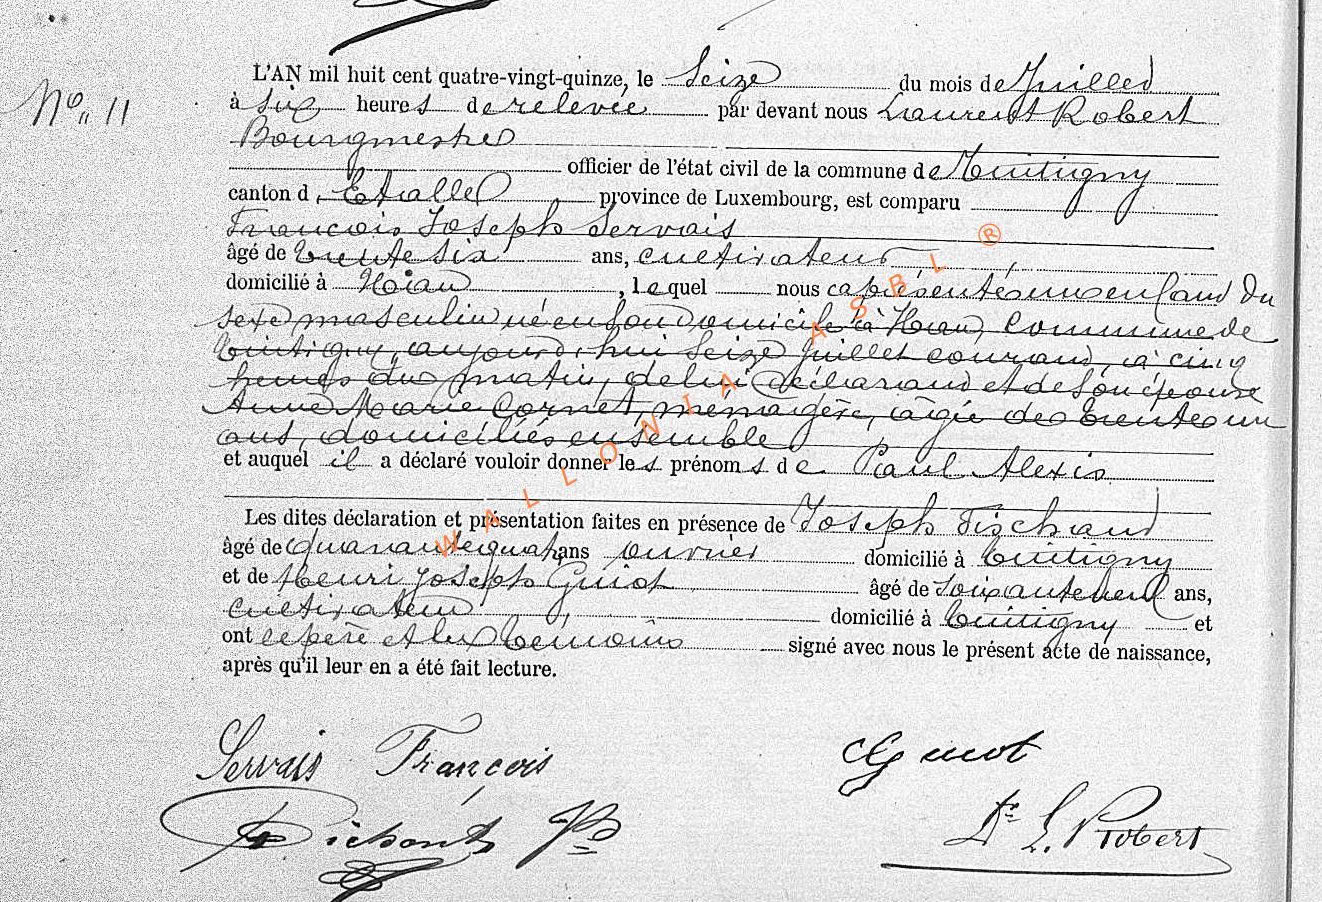 N° 11
L'AN mil huit cent quatre-vingt-quinze, le Seize du mois de Juillet
à six heures de relevée par devant nous Laurent Robert
Bourgmestre
officier de l'état civil de la commune de Tintigny
canton d'Etalle province de Luxembourg, est comparu
François Joseph Servais
âgé de trente six ans, cultivateur,
domicilié à Han, lequel nous a présenté un enfant du
sexe masculin né en son domicile à Han, commune de
Tintigny, aujourd'hui seize Juillet courant, à cinq
heures du matin, de lui déclarant et de son épouse
Anne Marie Cornet, ménagère, âgée de trente un
ans, domiciliés ensemble
et auquel il a déclaré vouloir donner les prénoms de Paul Alexis
Les dites déclaration et présentation faites en présence de Joseph
âgé de quarante quatre ans ouvrier domicilié à Tintigny
et de Henri Joseph Guiot âgé de soixante neuf ans,
cultivateur domicilié à Tintigny et
ont le père et les témoins signé avec nous le présent acte de naissance,
après qu'il leur en a été fait lecture.
Servais François
Guiot
Dr L. Robert
WALLONIA ASBL ®